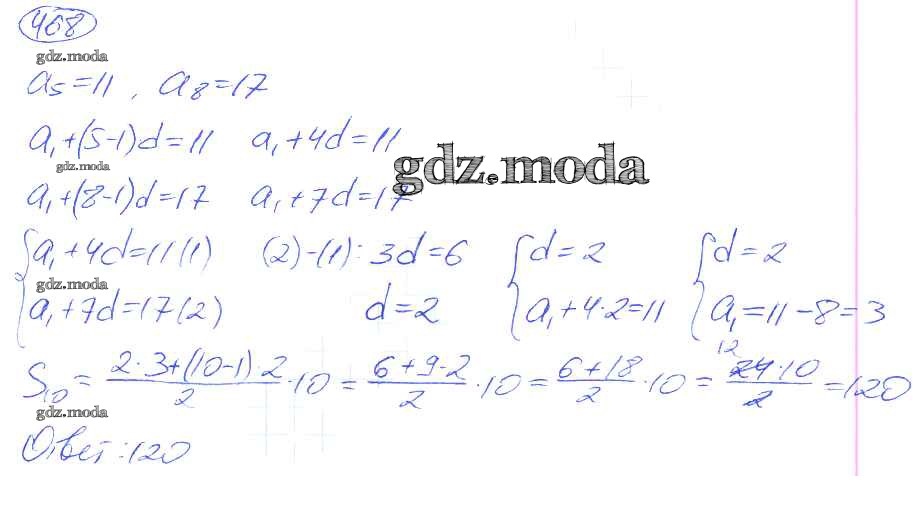 468
gdz.moda
a₅=11, a₈=17
a₁+(5-1)d=11 a₁+4d=11
gdz.moda
gdz.moda
a₁+(8-1)d=17 a₁+7d=17
{a₁+4d=11 (1) (2)-(1): 3d=6 {d=2 {d=2
gdz.moda
a₁+7d=17 (2) d=2 a₁+4·2=11 a₁=11-8=3
S₁₀ = (2·3+(10-1)·2)/2 ·10 = (6+9·2)/2 ·10 = (6+18)/2 ·10 = (24·10)/2 = 120
12
gdz.moda
Ответ: 120